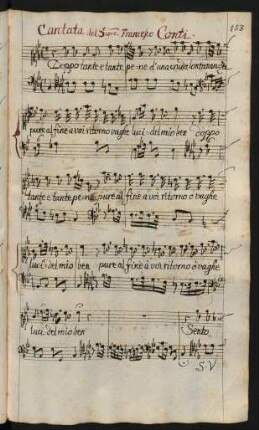 Cantata del Sigre. Francesco Conti
153
Doppo tante e tante pe-ne d'una cruda lontananza
pure al fine a voi ritorno vaghe luci del mio ben doppo
tante e tante pe-ne pure al fine a voi ritorno o vaghe
luci del mio ben pure al fine a voi ritorno o vaghe
luci del mio ben Sento
S V